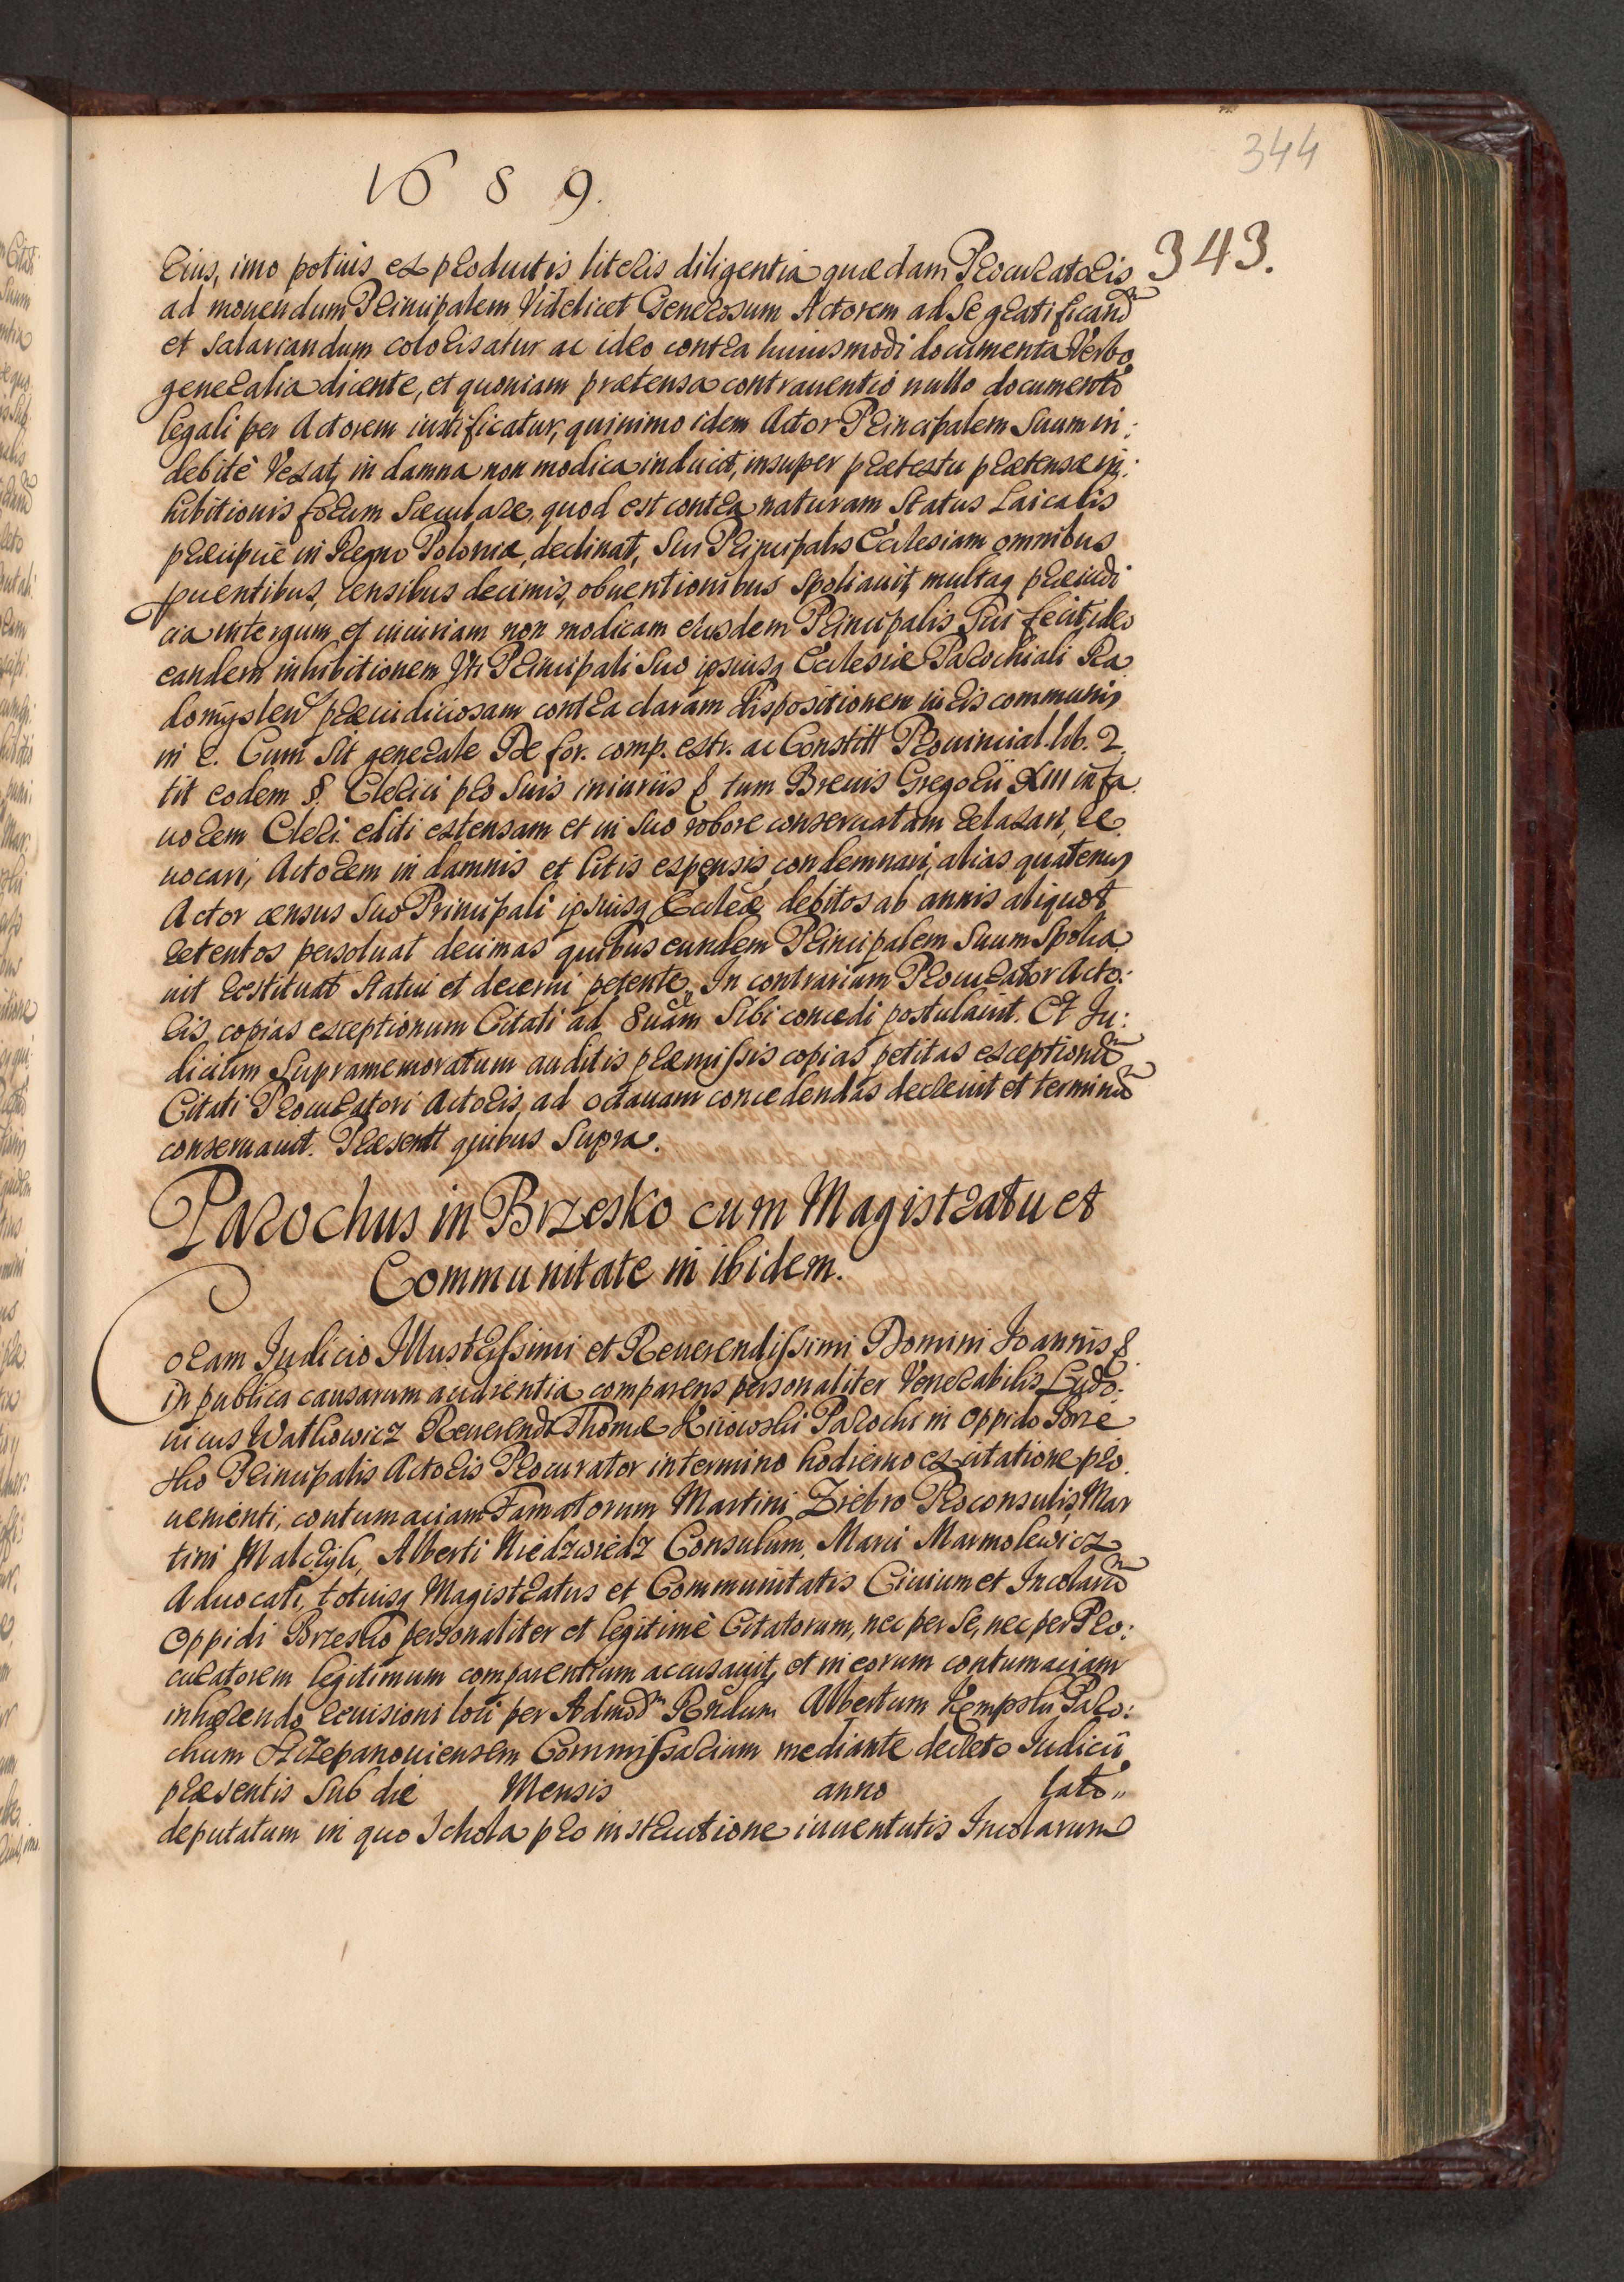 344
1689.
343.
eius, imo potius ex productis literis diligentia quædam Procuratoris
ad mouendum Principalem Videlicet Generosum Actorem ad se gratificand
et salariandum colorisatur ac ideo contra huiusmodi documenta Verbo
generalia dicente, et quoniam prætensa contrauentio nullo documento
legali per Actorem iustificatur, quinimo idem Actor Principalem Suum in:
debitè Vexat, in damna non modica inducit, insuper prætextu prætensæ in:
hibitionis forum Sæculare, quod est contra naturam Status Laicalis
præcipuè in Regno Poloniæ, declinat, Sui Principalis Ecclesiam omnibus
puentibus, censibus decimis, obuentionibus Spoliauit, multaq præiudi
cia intergum et iniuriam non modicam eiusdem Principalis Sui fecit, ideo
eandem inhibitionem Vti Principali Suo ipsiusq Ecclesiæ Parochiali Ra
domyslen præiudiciosam contra claram dispositionem iuris communis
in c. Cum Sit generale De for. comp. extr. ac Constitt Prouincial. lib. 2.
tit eodem §. Clerici pro Suis iniuriis & tum Breuis Gregorii XIII in fa
uorem Cleri editi extensam et in Suo robore conseruatam relaxari, re
uocari, Actorem in damnis et litis expensis condemnari, alias quatenus
Actor census Suo Principali ipsiusq Ecclæ debitos ab annis aliquot
retentos persoluat decimas quibus eundem Principalem Suum Spolia
uit restituat Statui et decerni petente. In contrarium Procurator Acto:
ris, copias exceptionum Citati ad 8uam Sibi concedi postulauit. Et Ju:
dicium Supramemoratum auditis præmissis copias petitas exceptionu
Citati Procuratori Actoris, ad octauam concedendas decreuit et terminu
conseruauit. Præsentt quibus Supra.
Parochus in Brzesko cum Magistratu et
Communitate in ibidem.
Coram Judicio Illustrissimi et Reuerendissimi Domini Joannis &
in publica causarum audientia comparens personaliter Venerabilis Ludo:
uicus Watkowicz Reuerendi Thomæ Kiiowski Parochi in Oppido Brze
sko Principalis Actoris Procurator in termino hodierno ex citatione pro
uenienti, contumaciam Famatorum Martini Ziebro Proconsulis, Mar
tini Malczyk, Alberti Niedzwiedz Consulum, Marci Marmolewicz
Aduocati, totiusq Magistratus et Communitatis Ciuium et Incolaru
Oppidi Brzesko personaliter et legitimè Citatorum, nec per Se, nec per Pro:
curatorem legitimum comparentium accusauit, et in eorum contumaciam
inhærendo reuisioni loci per Admod Rndum Albertum Kempski Paro:
chum Szczepanouiensem Commissarium mediante decreto Iudicii
præsentis Sub die Mensis anno lato
deputatum in quo Schola pro instructione iuuentutis Incolarum